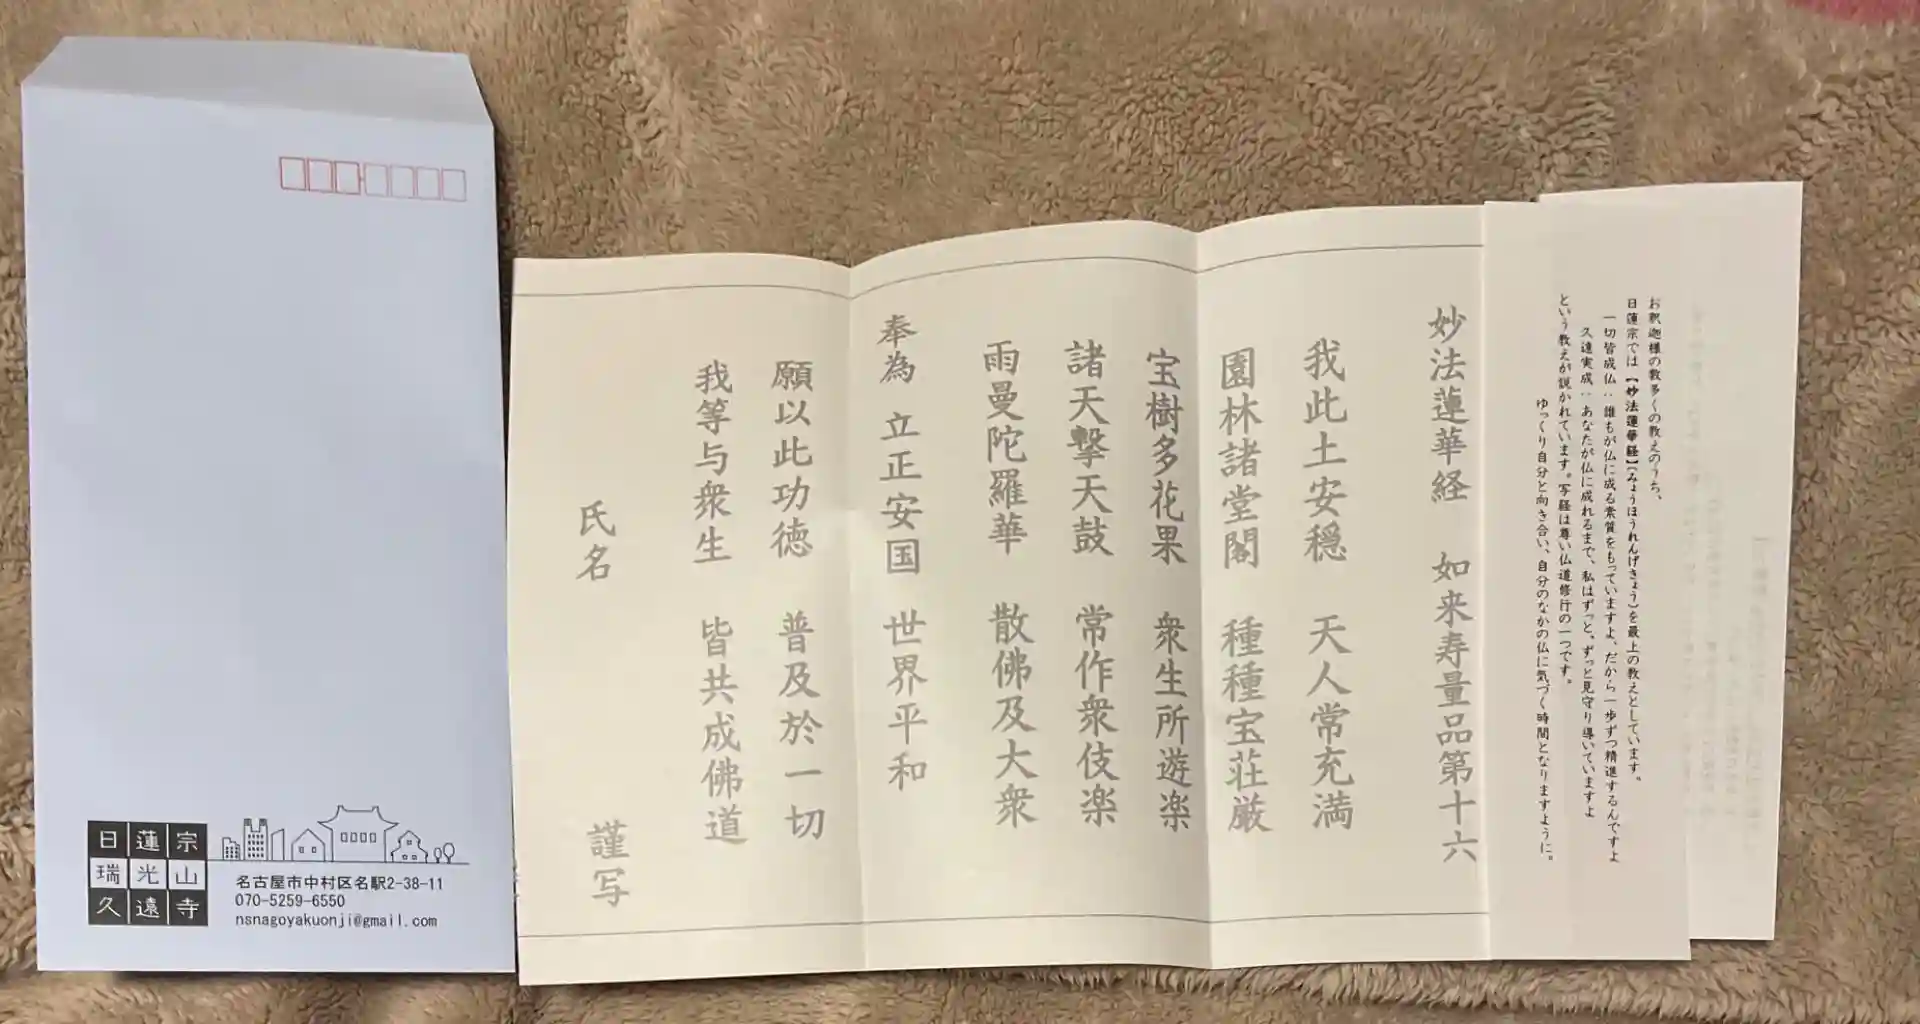 お釈迦様の数多くの教えのうち、
日蓮宗では【妙法蓮華経】(みょうほうれんげきょう)を最上の教えとしています。
一切皆成仏：誰もが仏に成る素質をもっていますよ、だから一歩ずつ精進するんですよ
久遠実成：あなたが仏に成れるまで、私はずっと、ずっと見守り導いていますよ
という教えが説かれています。写経は尊い仏道修行の一つです。
ゆっくり自分と向き合い、自分のなかの仏に気づく時間となりますように。
妙法蓮華経 如来寿量品第十六
我此土安穏 天人常充満
園林諸堂閣 種種宝荘厳
宝樹多花果 衆生所遊楽
諸天撃天鼓 常作衆伎楽
雨曼陀羅華 散佛及大衆
奉為 立正安国 世界平和
願以此功徳 普及於一切
我等与衆生 皆共成佛道
氏名 謹写
日蓮宗
瑞光山
久遠寺
名古屋市中村区名駅2-38-11
070-5259-6550
nsnagoyakuonji@gmail.com